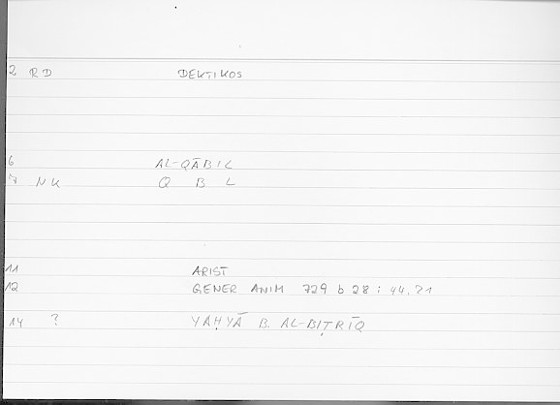 2 RD DEKTIKOS
6 AL-QĀBIL
7 NK Q B L
11 ARIST
12 GENER ANIM 729 b 28 : 44,21
14 ? YAḤYĀ B. AL-BIṬRĪQ